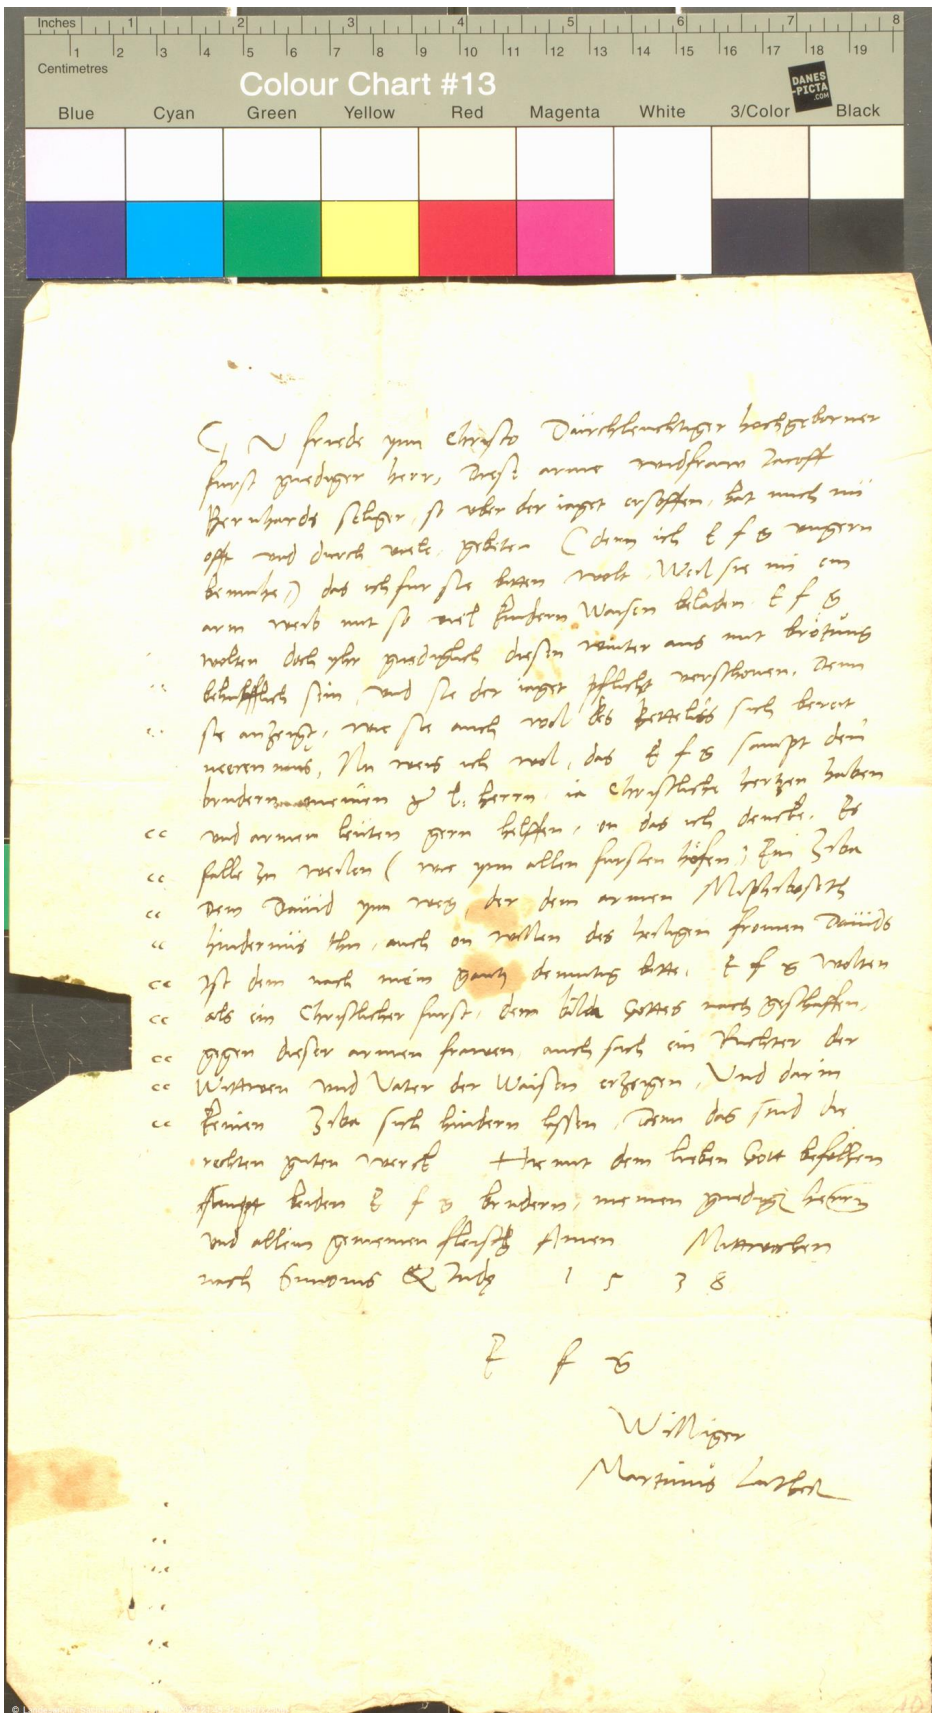 Inches 1 2 3 4 5 6 7 8
1 2 3 4 5 6 7 8 9 10 11 12 13 14 15 16 17 18 19
Centimetres
Colour Chart #13
DANES
-PICTA
.COM
Blue Cyan Green Yellow Red Magenta White 3/Color Black
G V friede ynn Christo Durchleuchtiger hochgeborner
furst gnediger herr, Diese arme widfraw Jacoff
Bernhards seliger, so vber der iaget ersoffen, hat mich nu
offt vnd durch viele gebeten (denn ich E f g vngern
bemuhe) das ich fur sie bitten wolt, Weil sie nu ein
arm weib mit so viel kindern Waisen beladen, E f g
wolten doch yhr gnediglich diesen winter aus mit brotung
behulfflich sein, vnd sie der iaget pflicht verschonen, Denn
sie anzeigt, wie sie auch wol des Bettelns sich bereit
neeren mus, Nu weis ich wol, das E f g sampt den
brudern meinen g l herrn, ia Christliche hertzen haben
vnd armen leuten gern helffen, on das ich dencke, Es
falle zu weilen (wie ynn allen fursten höfen) Ein Ziba
dem Dauid ynn weg, der dem armen Mephiboseth
hindernis thu, auch on willen des heiligen fromen Dauids
Ist dem nach mein gantz demutig bitte, E f g wolten
als ein Christlicher furst, dem bilde Gottes nach geschaffen,
gegen dieser armen frawen, auch sich ein Richter der
Wittwen vnd Vater der Waisen erzeigen, Vnd darin
keinen Ziba sich hindern lassen, Denn das sind die
rechten guten werck Hie mit dem lieben Gott befolhen
sampt beiden E f g brudern, meinen gnedigen herrn
vnd allem gemeinen fleisch Amen Mittwochen
nach Simonis & Jude 1 5 3 8
E f g
Williger
Martinus Luther